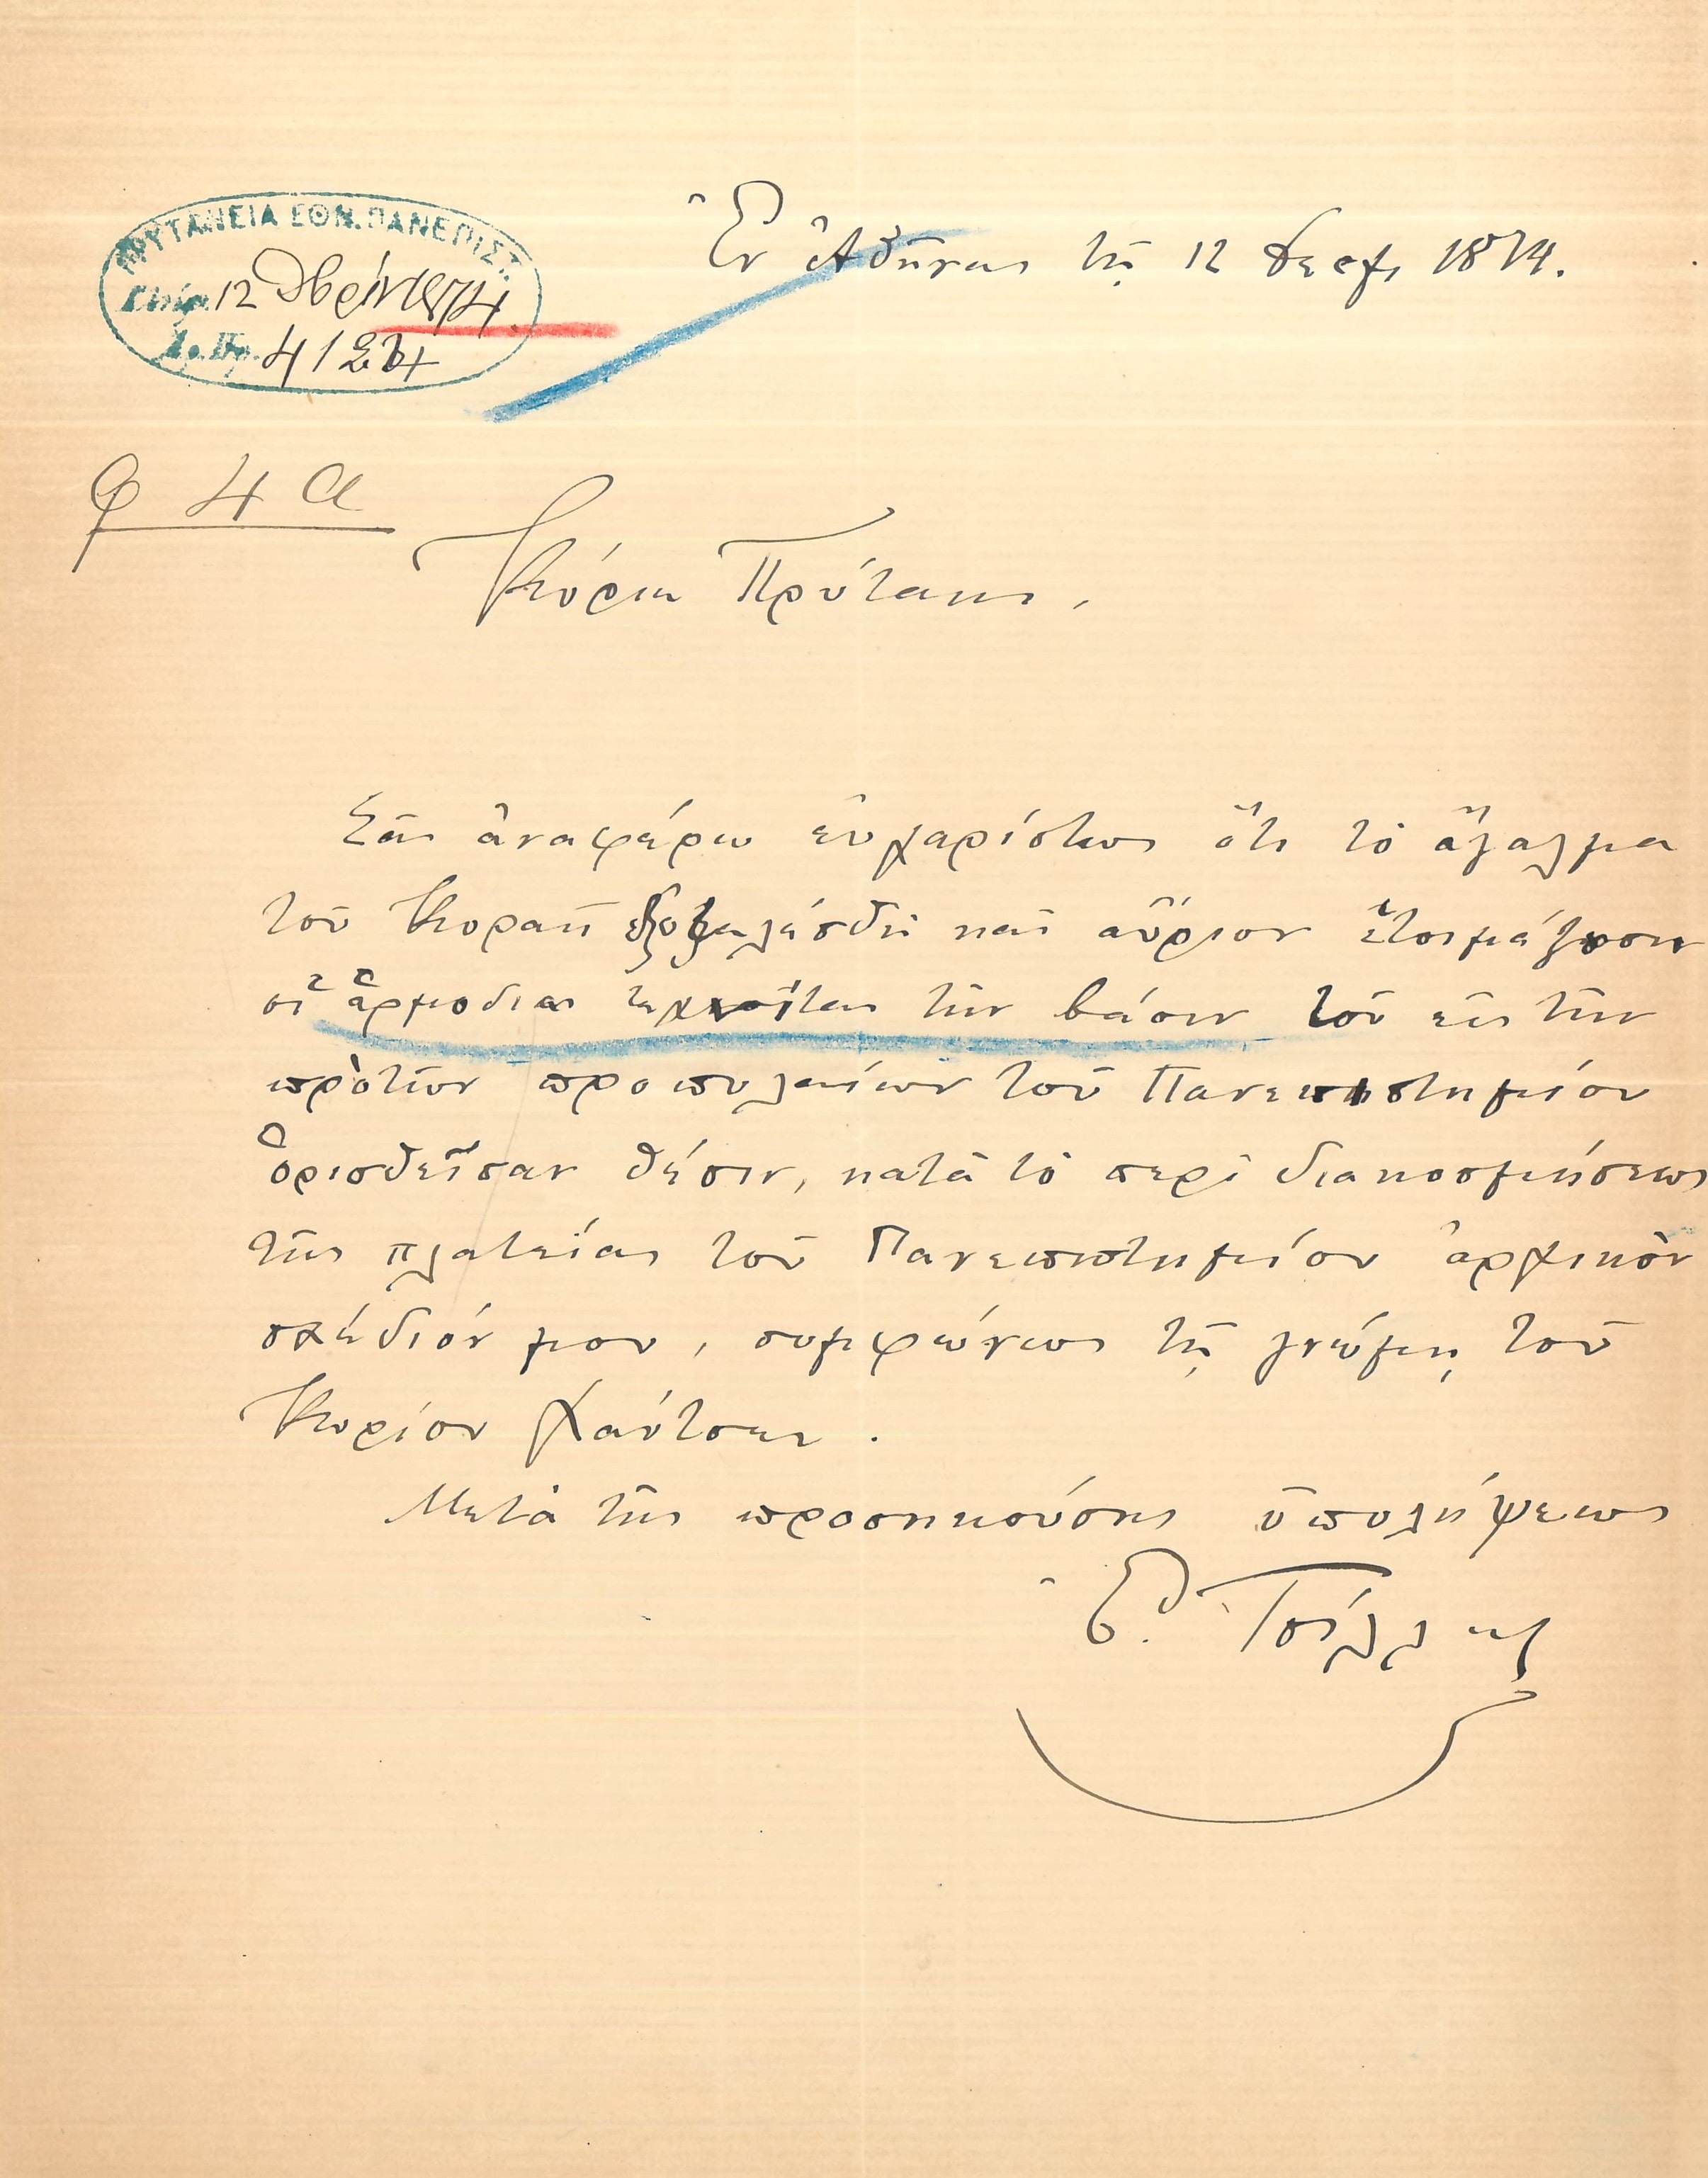 ΠΡΥΤΑΝΕΙΑ ΕΘΝ. ΠΑΝΕΠΙΣΤ.
12 1874
Ἀρ. Πρ. 4124
Ἐν Ἀθήναις τῇ 12 1874.
Φ 4 α
Κύριε Πρύτανις,
Σᾶς ἀναφέρω εὐχαρίστως ὅτι τὸ ἄγαλμα
τοῦ Κοραῆ καὶ αὔριον ἑτοιμάζουσιν
οἱ ἁρμόδιοι τεχνῖται τὴν βάσιν τοῦ εἰς τὴν
πρὸ τῶν προπυλαίων τοῦ Πανεπιστημίου
ὁρισθεῖσαν θέσιν, κατὰ τὸ περὶ διακοσμήσεως
τῆς πλατείας τοῦ Πανεπιστημίου ἀρχικὸν
σχέδιόν μου, συμφώνως τῇ γνώμῃ τοῦ
Κυρίου Χάνσεν.
Μετὰ τῆς προσηκούσης ὑπολήψεως
Ἐ. Τσίλλερ